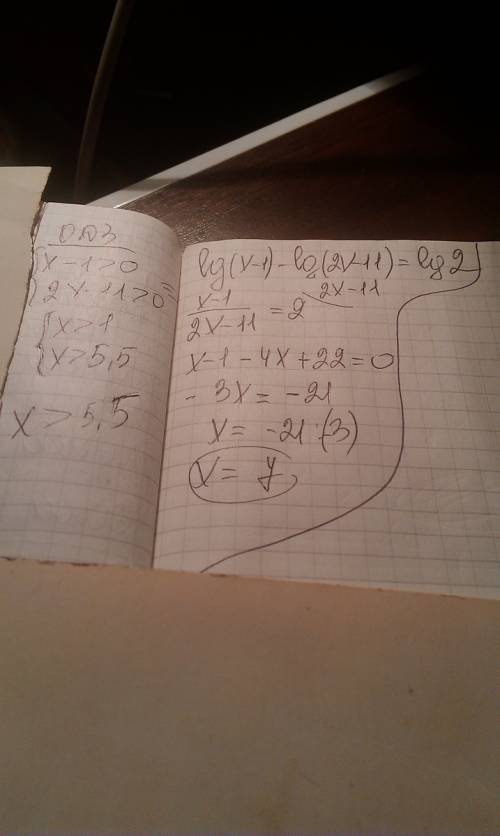 ОДЗ
x-1>0
2x-11>0
x>1
x>5,5
x>5,5
lg(x-1)-lg(2x-11)=lg2
x-1/2x-11 = 2 2x-11
x-1-4x+22=0
-3x=-21
x=-21:(3)
x=7